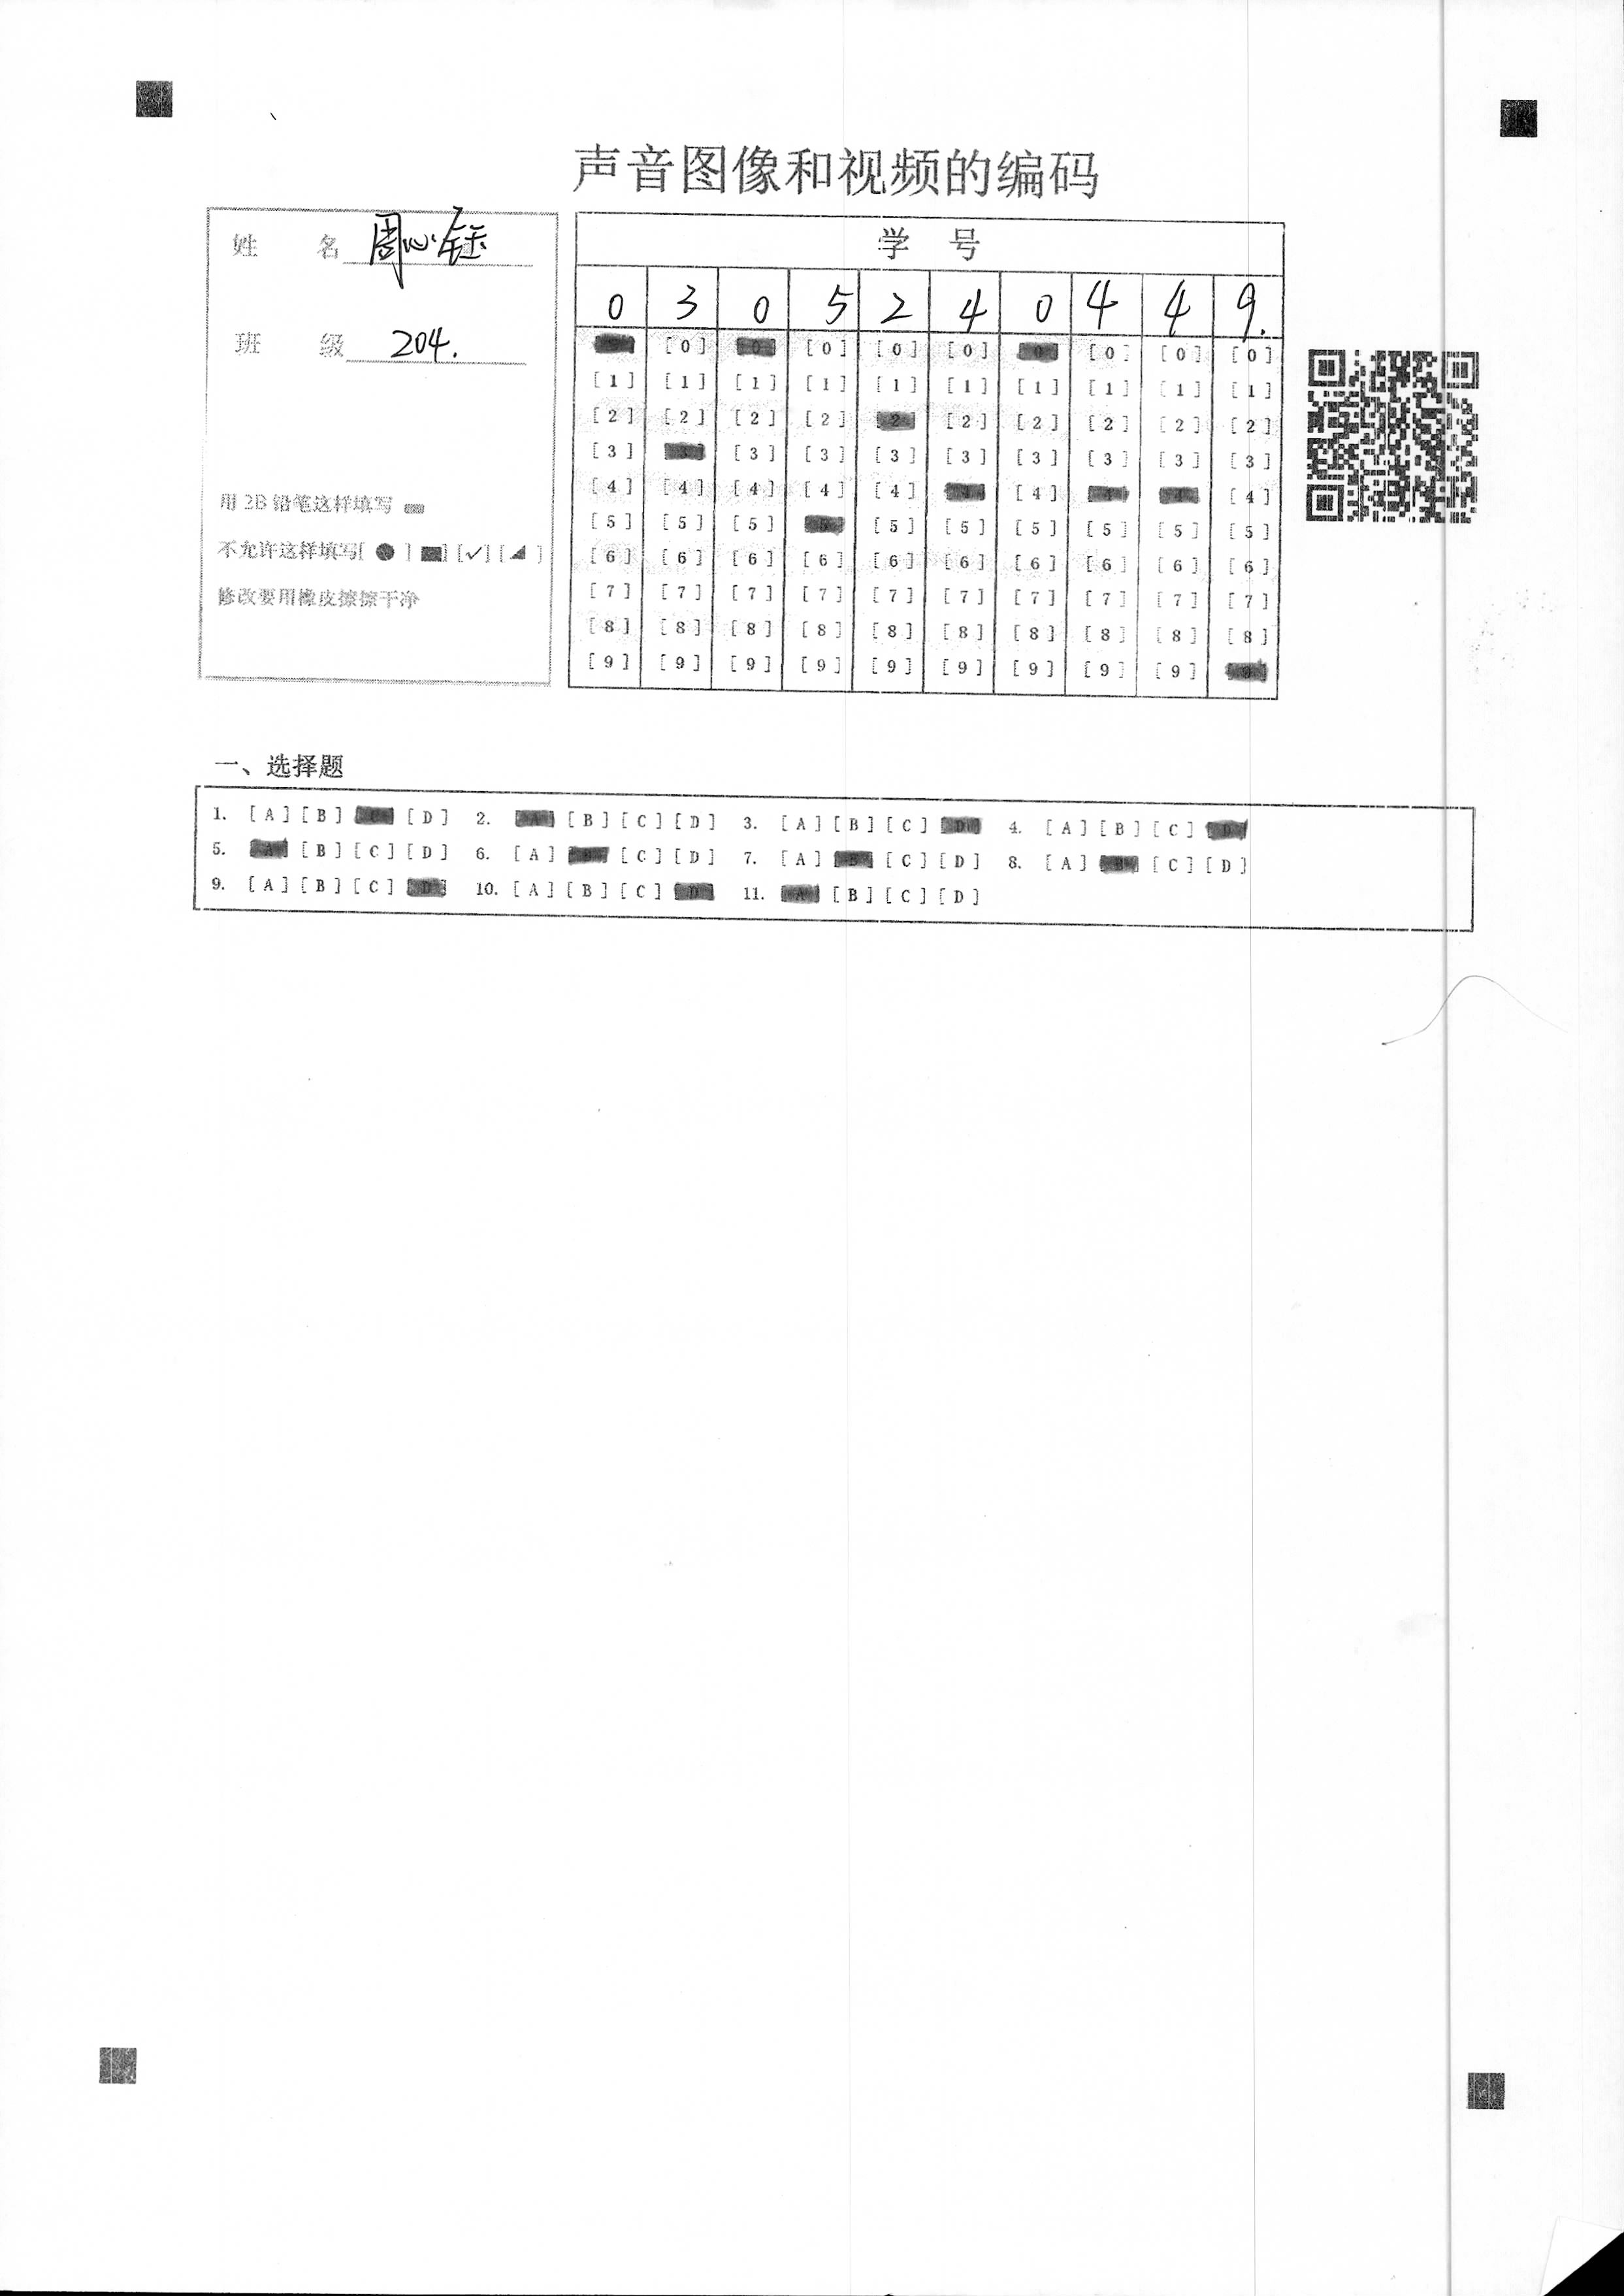 声音图像和视频的编码
姓 名 周心钰
班 级 204.
用 2B 铅笔这样填写
不允许这样填写[ ● ] [■] [✓] [◢ ]
修改要用橡皮擦擦干净
学 号
0 3 0 5 2 4 0 4 4 9.
[0] [0] [0] [0] [0] [0] [0] [0]
[1] [1] [1] [1] [1] [1] [1] [1] [1] [1]
[2] [2] [2] [2] 2 [2] [2] [2] [2] [2]
[3] [3] [3] [3] [3] [3] [3] [3] [3]
[4] [4] [4] [4] [4] [4] [4]
[5] [5] [5] [5] [5] [5] [5] [5] [5]
[6] [6] [6] [6] [6] [6] [6] [6] [6] [6]
[7] [7] [7] [7] [7] [7] [7] [7] [7] [7]
[8] [8] [8] [8] [8] [8] [8] [8] [8] [8]
[9] [9] [9] [9] [9] [9] [9] [9] [9]
一、选择题
1. [A] [B] [D] 2. [B] [C] [D] 3. [A] [B] [C] [D] 4. [A] [B] [C] [D]
5. [A] [B] [C] [D] 6. [A] [C] [D] 7. [A] [B] [C] [D] 8. [A] [B] [C] [D]
9. [A] [B] [C] [D] 10. [A] [B] [C] [D] 11. [A] [B] [C] [D]